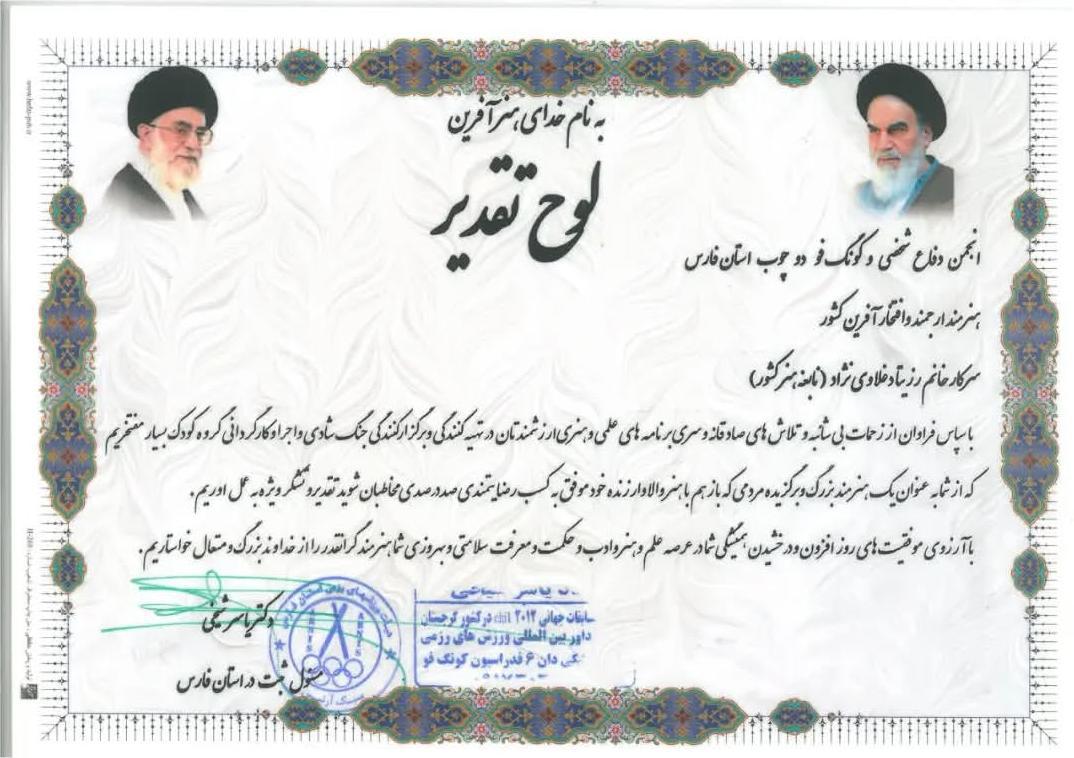 به نام خدای هنرآفرین
لوح تقدیر
انجمن دفاع شخصی و کونگ فو دو چوب استان فارس
هنرمند ارجمند و افتخار آفرین کشور
سرکار خانم رزیتا دغلاوی نژاد (نابغه هنر کشور)
با سپاس فراوان از زحمات بی شائبه و تلاش های صادقانه و سری برنامه های علمی و هنری ارزشمندتان در تهیه کنندگی و برگزارکنندگی جنگ شادی و اجرا و کارگردانی گروه کودک بسیار مفتخریم
که از شما به عنوان یک هنرمند بزرگ و برگزیده مردمی که باز هم با هنر والا و ارزنده خود موفق به کسب رضایتمندی صد در صدی مخاطبان شوید تقدیر و تشکر ویژه به عمل اوریم.
با آرزوی موفقیت های روز افزون و درخشیدن همیشگی شما در عرصه علم و هنر و ادب و حکمت و معرفت سلامتی و بهروزی شما هنرمند گرانقدر را از خداوند بزرگ و متعال خواستاریم.
دکتر یاسر شیخی
مسئول ثبت در استان فارس
مسابقات جهانی ۲۰۱۲ در کشور گرجستان
داور بین المللی ورزش های رزمی
دان ۶ فدراسیون کونگ فو